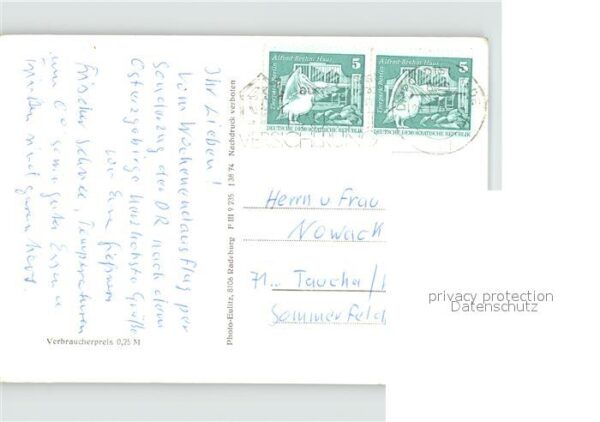 Ihr Lieben!
Vom Wochenendausflug per
Sonderzug der DR nach dem
Osterzgebirge herzlichste Grüße
von Eure
Frischer Schnee, Temperaturen
um 0° sowie gutes Essen u
sind garantiert.
Verbraucherpreis 0,25 M
Photo-Eulitz, 8106 Radeburg P III 9 235 1 38 74 Nachdruck verboten
Alfred-Brehm-Haus
Tierpark Berlin
5
DEUTSCHE DEMOKRATISCHE REPUBLIK
Alfred-Brehm-Haus
Tierpark Berlin
5
DEUTSCHE DEMOKRATISCHE REPUBLIK
Herrn u Frau
Nowack
71.. Taucha/
Sommerfeld
privacy protection
Datenschutz